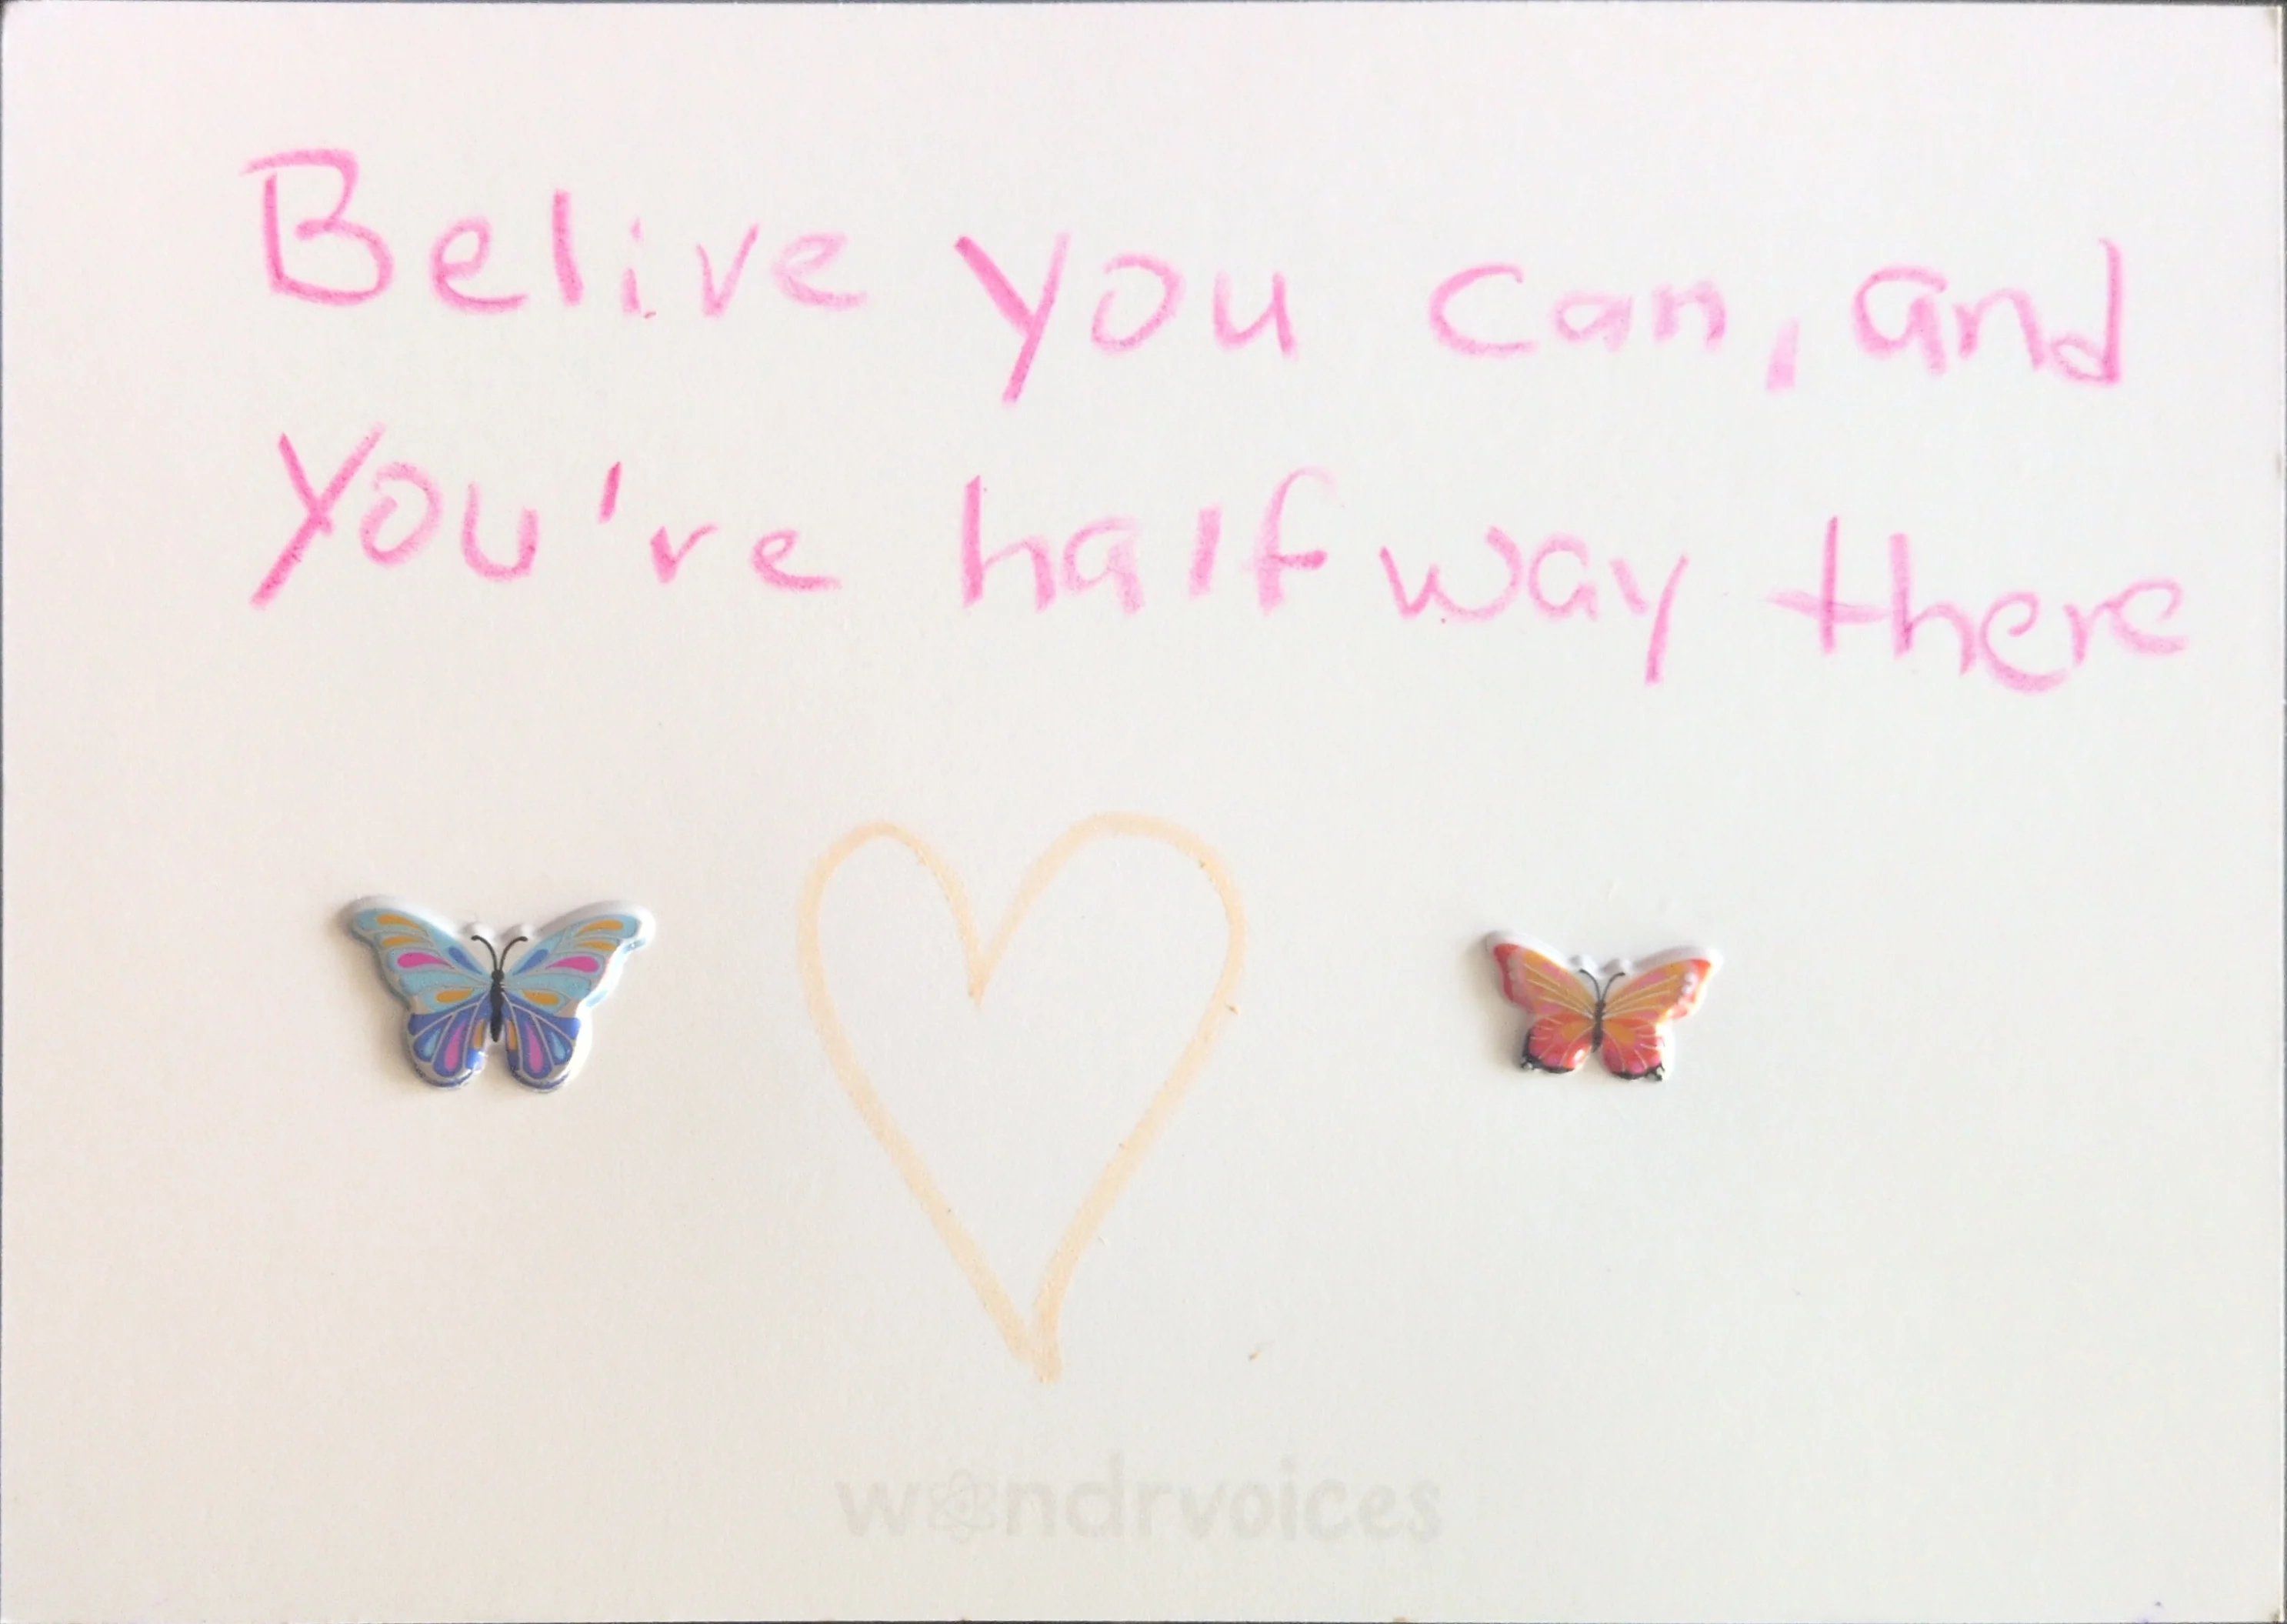 Belive you can, and
you're half way there
wondrvoices